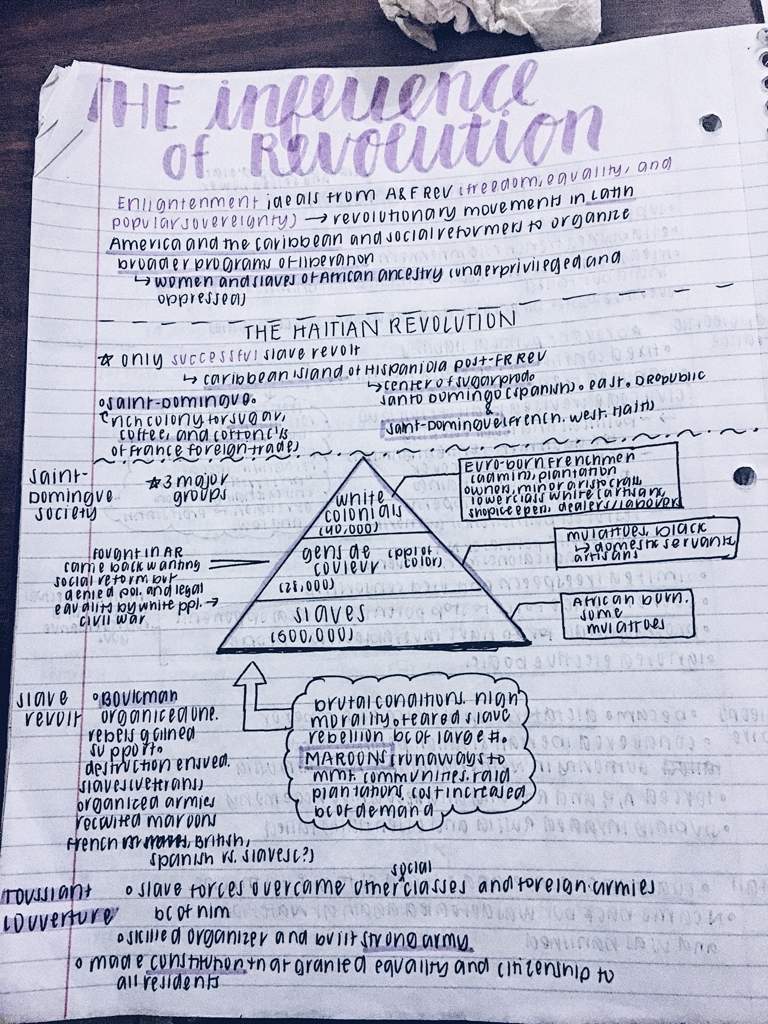 THE influence
of Revolution
Enlightenment ideals from A&F REV (freedom, equality, and
popular sovereignty) → revolutionary movements in Latin
America and the Caribbean and social reformers to organize
broader programs of liberation
↳ women and slaves of African ancestry (underprivileged and
oppressed)
THE HAITIAN REVOLUTION
☆ only successful slave revolt
↳ caribbean island of Hispaniola post-FR REV
↳ center of sugar prod.
Santo Domingo (Spanish). east. D Republic
&
Saint-Domingue (French. West. Haiti)
◦ Saint-Domingue.
rich colony for sugar,
coffee, and cotton (⅓
of France foreign trade)
Saint-
Domingue
society
☆ 3 major
groups
white
colonials
(40,000)
gens de
couleur (ppl of
color)
(28,000)
slaves
(500,000)
Euro-born Frenchmen
(admin, plantation
owners, minor aristocrats,
lower class white (artisans,
shopkeepers, dealers, labover
mulattoes, black
↳ domestic servants
artisans
African born.
some
mulattoes
fought in AR
came back wanting
social reform but
denied pol. and legal
equality by white ppl. →
civil war
slave
revolt
◦ Boukman
organized one.
rebels gained
support.
destruction ensued.
slaves (vetrans)
organized armies
recruited maroons
French British,
Spanish vs. slaves(?)
brutal conditions. high
morality. feared slave
rebellion bc of large #.
MAROONS (runaways to
mnt. communities. raid
plantations. cost increased
bc of demand
Toussiant
Louverture
◦ slave forces overcame other social classes and foreign armies
bc of him
◦ skilled organizer and built strong army.
◦ made constitution that granted equality and citizenship to
all residents